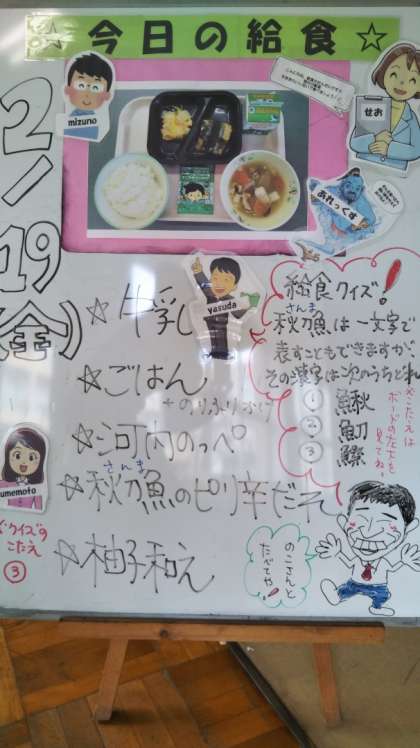 ☆今日の給食☆
2/19
(金)
mizuno
せお
あれっくす
Yasuda
☆牛乳
☆ごはん
+のりふりかけ
☆河内のっぺ
さんま
☆秋刀魚のピリ辛だれ
☆柚子和え
給食クイズ!
さんま
秋刀魚は一文字で
表すこともできますが、
その漢字は次のうちどれ
① 鰍
② 魛
③ 鱶
※こたえは
ボードの左下を
見てね。
umemoto
※クイズの
こたえ
③
のこさんと
たべてや!